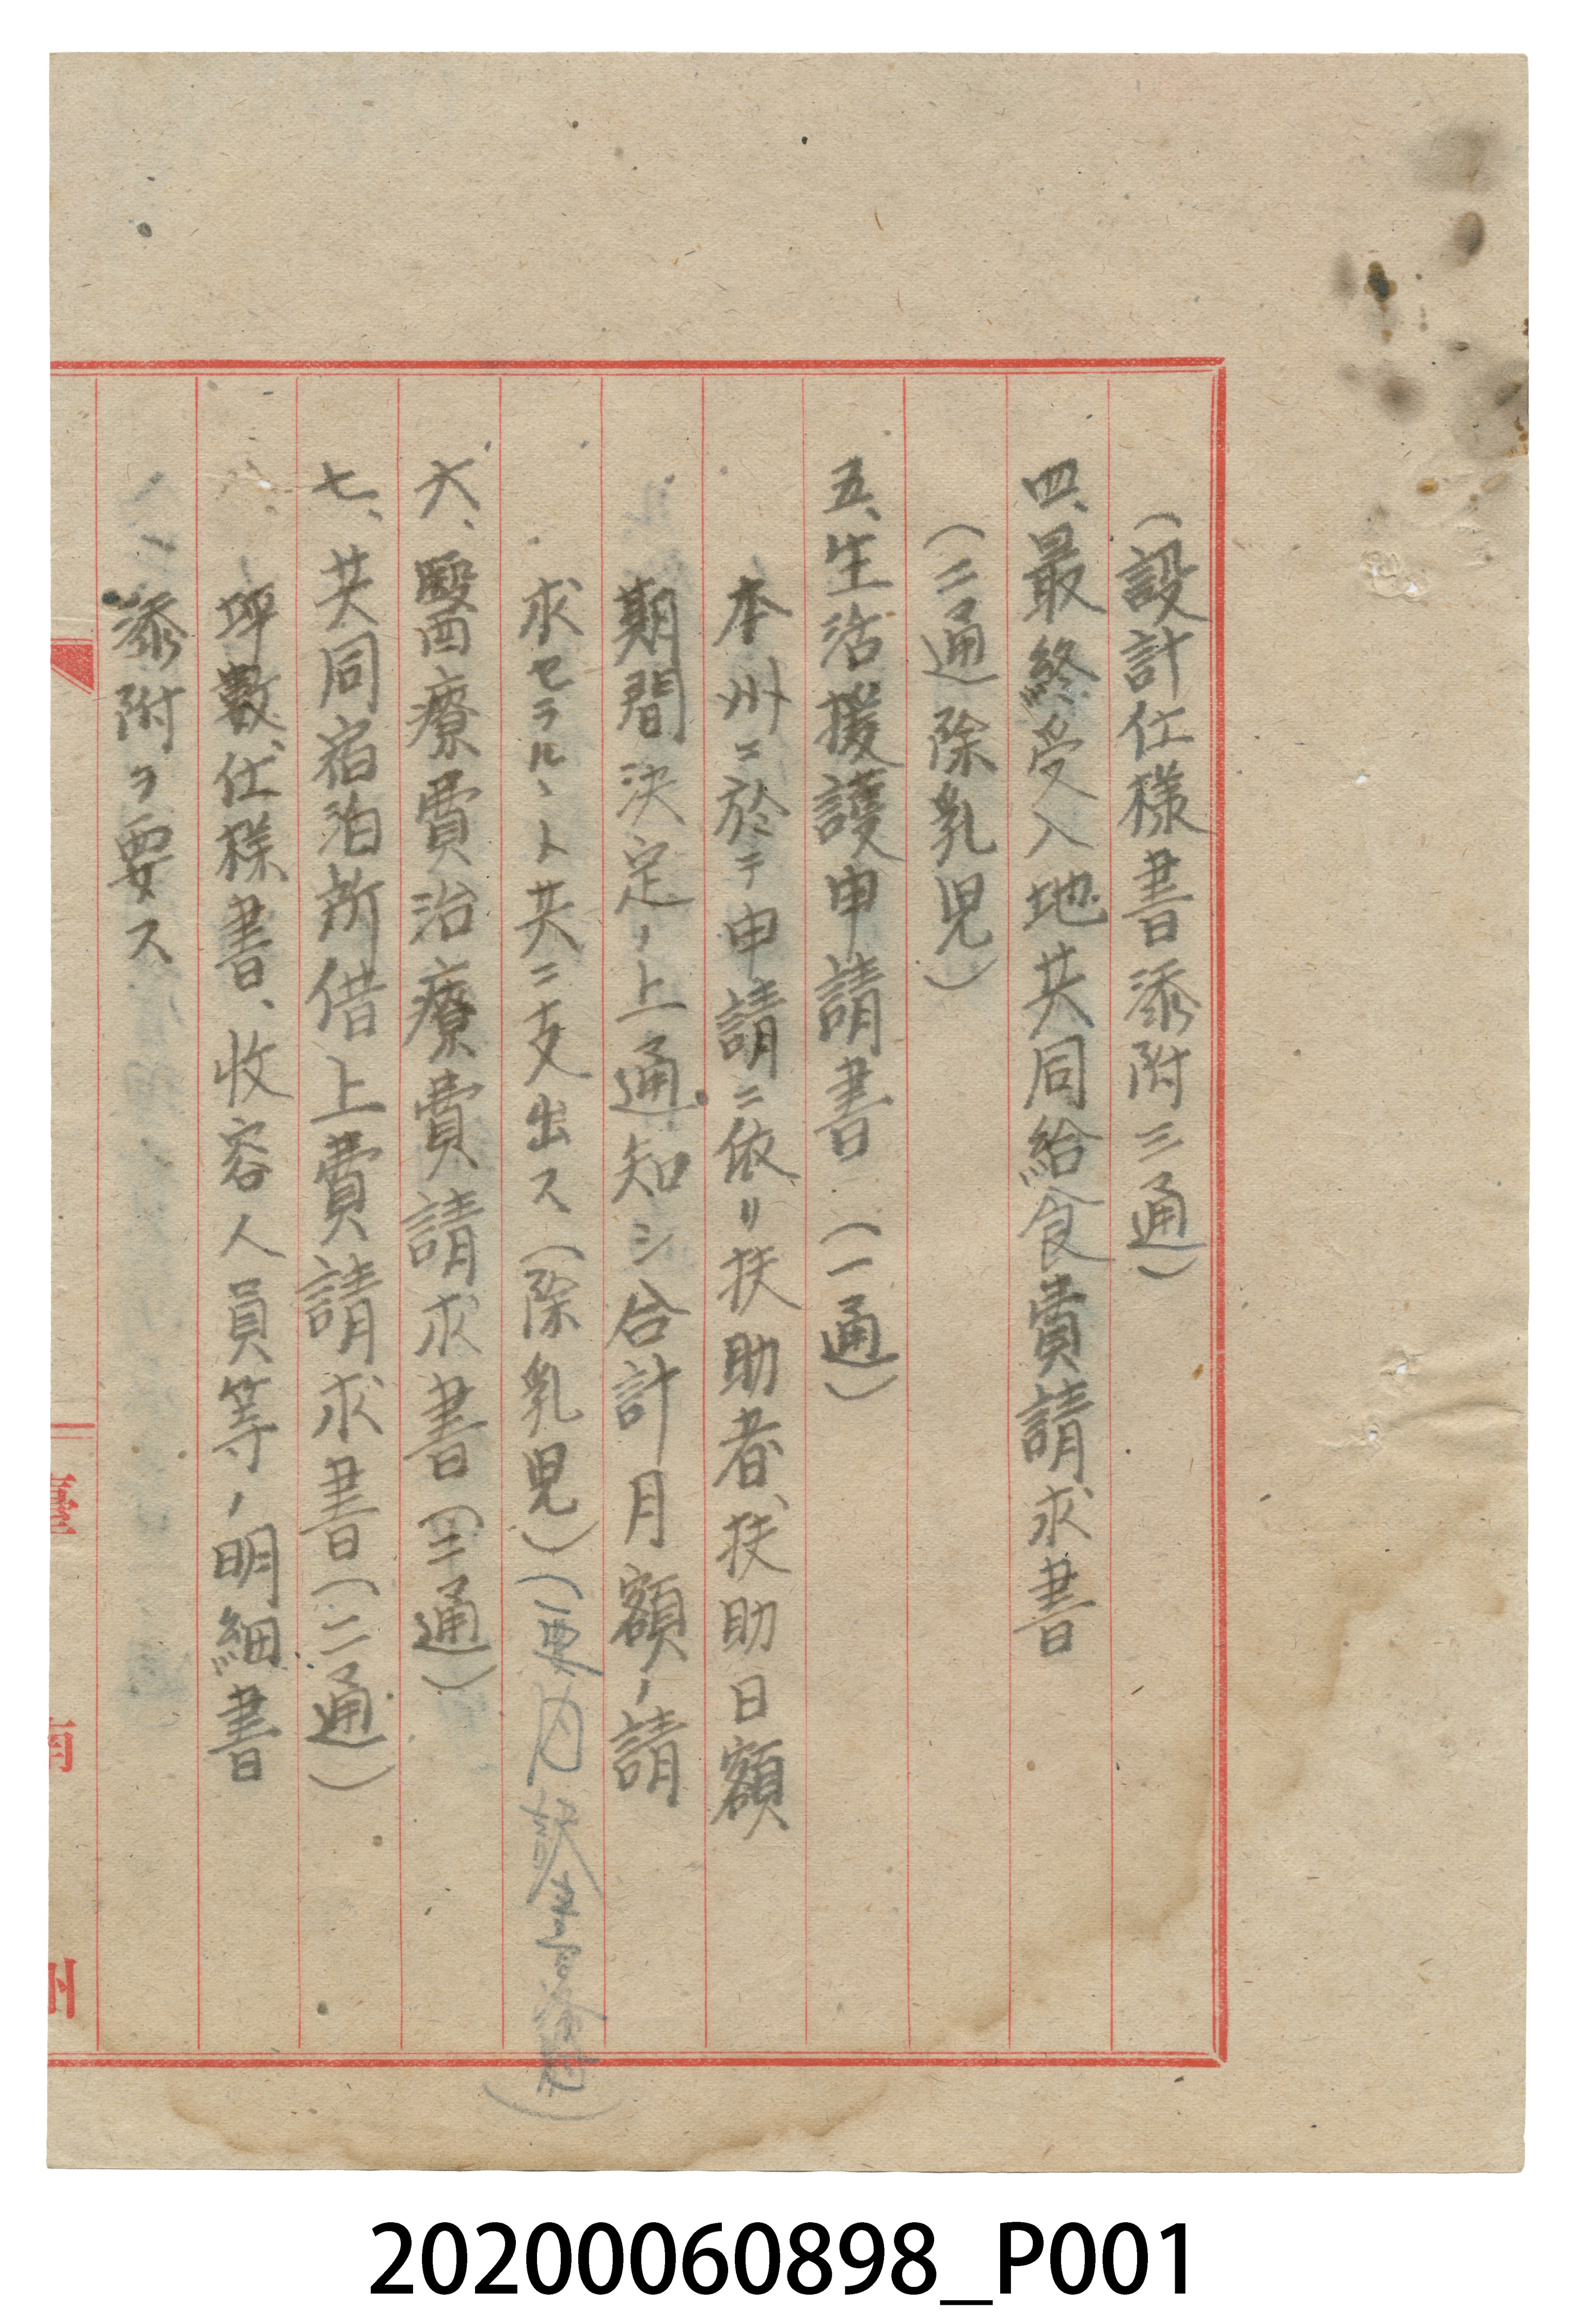 (設計仕様書添附三通)
四、最終受入地共同給食費請求書
(二通除乳児)
五、生活援護申請書 (一通)
本州ニ於テ申請ニ依リ扶助者、扶助日額、
期間決定ノ上通知シ合計月額ノ請
求セラルヽト共ニ支出ス(除乳児)(要内訳
六、醫療費治療費請求書(二通)
七、共同宿泊所借上費請求書(二通)
坪數、仕様書、收容人員等ノ明細書
添附ヲ要ス
州
20200060898_P001